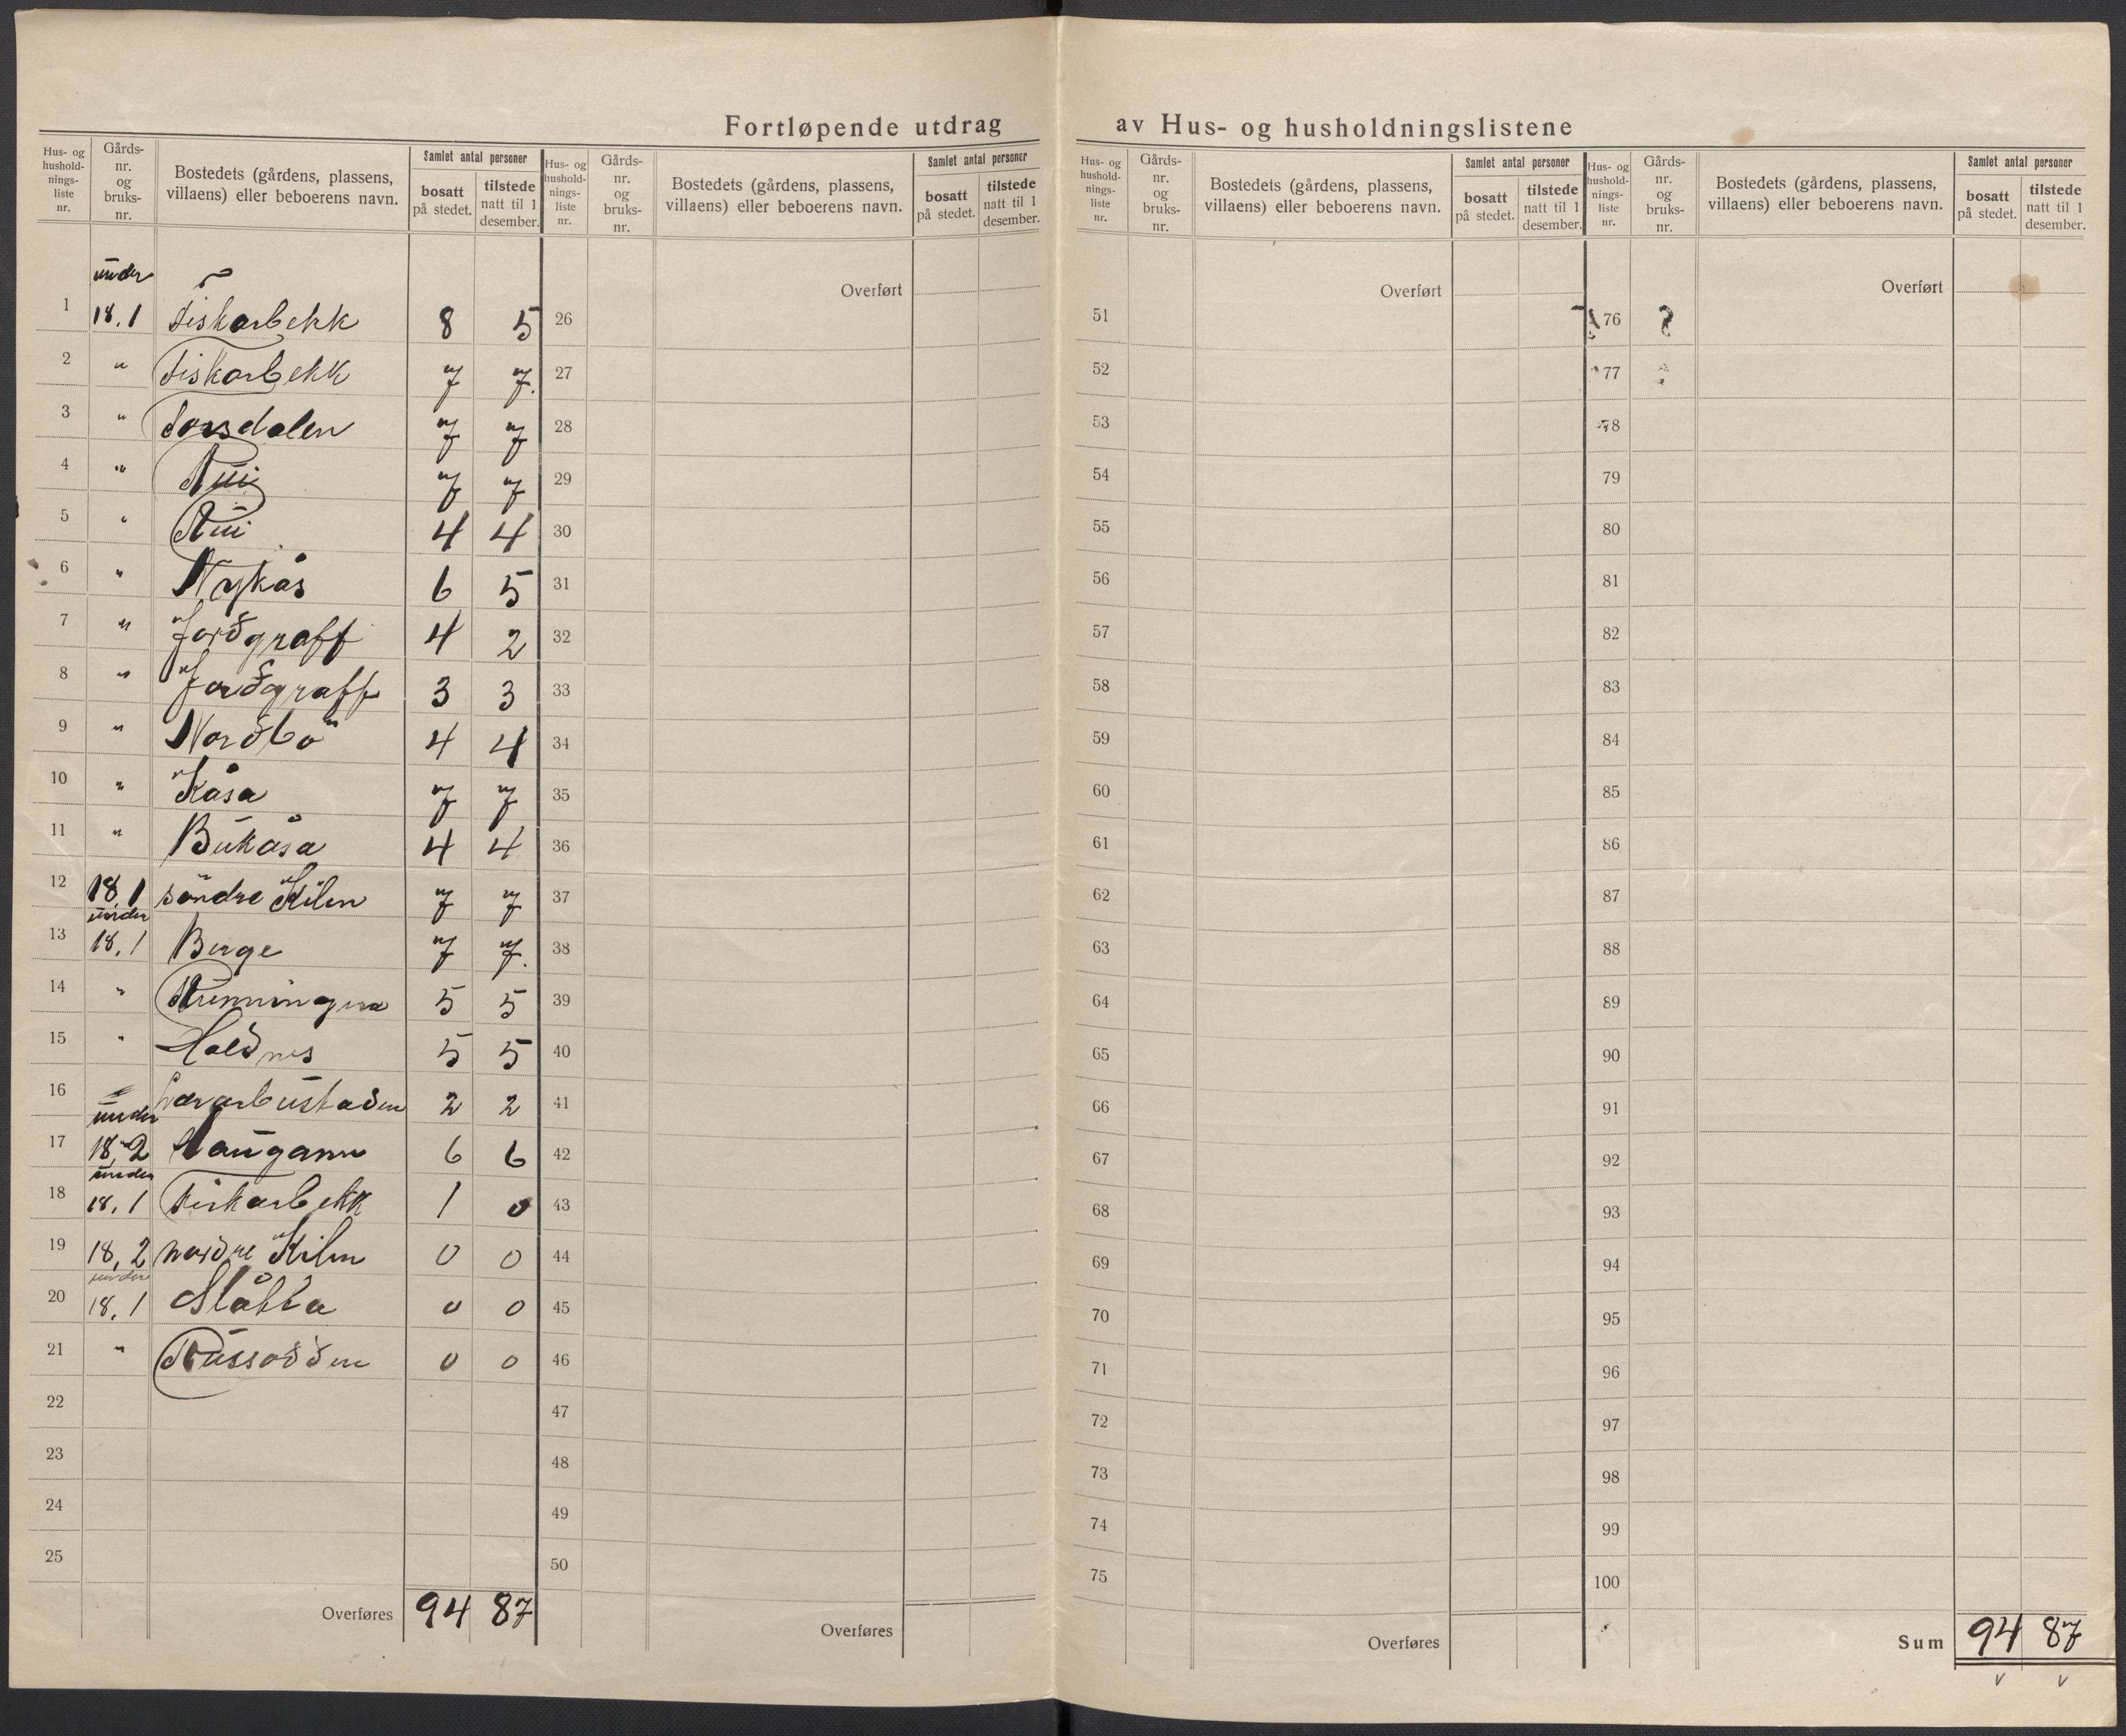 Fortløpende utdrag av Hus- og husholdningslistene
Hus- og hushold- nings- liste nr. Gårds- nr. og bruks- nr. Bostedets (gårdens, plassens, villaens) eller beboerens navn. Samlet antal personer bosatt på stedet. tilstede natt til 1 desember.
under
1 18,1 Fiskarbekk 8 5
2 " Fiskarbekk 7 7.
3 " 7 7
4 " Rui 7 7
5 " Rui 4 4
6 " Nykås 6 5
7 " Jordgraff 4 2
8 " Jordgraff 3 3
9 " Nordbö 4 4
10 " Kåsa 7 7
11 " Bukåsa 4 4
12 18,1 söndre Kilen 7 7
under
13 18,1 Berge 7 7.
14 " Runningen 5 5
15 " Holdnes 5 5
16 " Lærarbustaden 2 2
under
17 18,2 Haugann 6 6
under
18 18,1 Fiskarbekk 1 0
19 18,2 nordre Kilen 0 0
under
20 18,1 Slåkka 0 0
21 " Russodden 0 0
22
23
24
25
Overføres 94 87
Hus- og hushold- nings- liste nr. Gårds- nr. og bruks- nr. Bostedets (gårdens, plassens, villaens) eller beboerens navn. Samlet antal personer bosatt på stedet. tilstede natt til 1 desember.
Overført
26
27
28
29
30
31
32
33
34
35
36
37
38
39
40
41
42
43
44
45
46
47
48
49
50
Overføres
Hus- og hushold- nings- liste nr. Gårds- nr. og bruks- nr. Bostedets (gårdens, plassens, villaens) eller beboerens navn. Samlet antal personer bosatt på stedet. tilstede natt til 1 desember.
Overført
51
52
53
54
55
56
57
58
59
60
61
62
63
64
65
66
67
68
69
70
71
72
73
74
75
Overføres
Hus- og hushold- nings- liste nr. Gårds- nr. og bruks- nr. Bostedets (gårdens, plassens, villaens) eller beboerens navn. Samlet antal personer bosatt på stedet. tilstede natt til 1 desember.
Overført
76
77
78
79
80
81
82
83
84
85
86
87
88
89
90
91
92
93
94
95
96
97
98
99
100
Sum 94 87